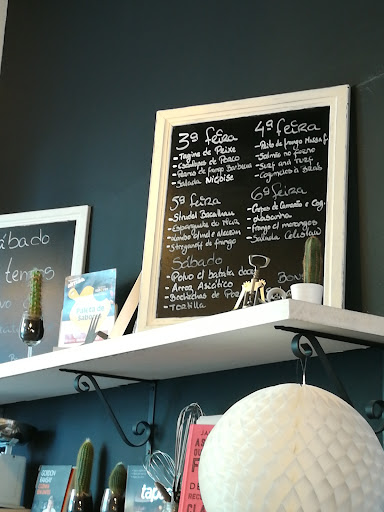 3ª feira
- Tagine de Peixe
- Escalopes de Porco
- Perna de frango Barbecue
- Salada Niçoise
4ª feira
- Peito de frango Massa f.
- Salmão no forno
- Surf and Turf
- Cogumelos à Bráb
5ª feira
- Strudel Bacalhau
- Espargute de
- Lombo
- Stroganoff de frango
6ª feira
- Crepes de Camarão e Cog.
- Lasanha
- Frango c/ morangos
- Salada
Sábado
- Polvo c/ batata doce
- Arroz Asiático
- Bochechas de Po
- Tortilla
Bom
ábado
temos
GORDON
RAMSAY
tapa